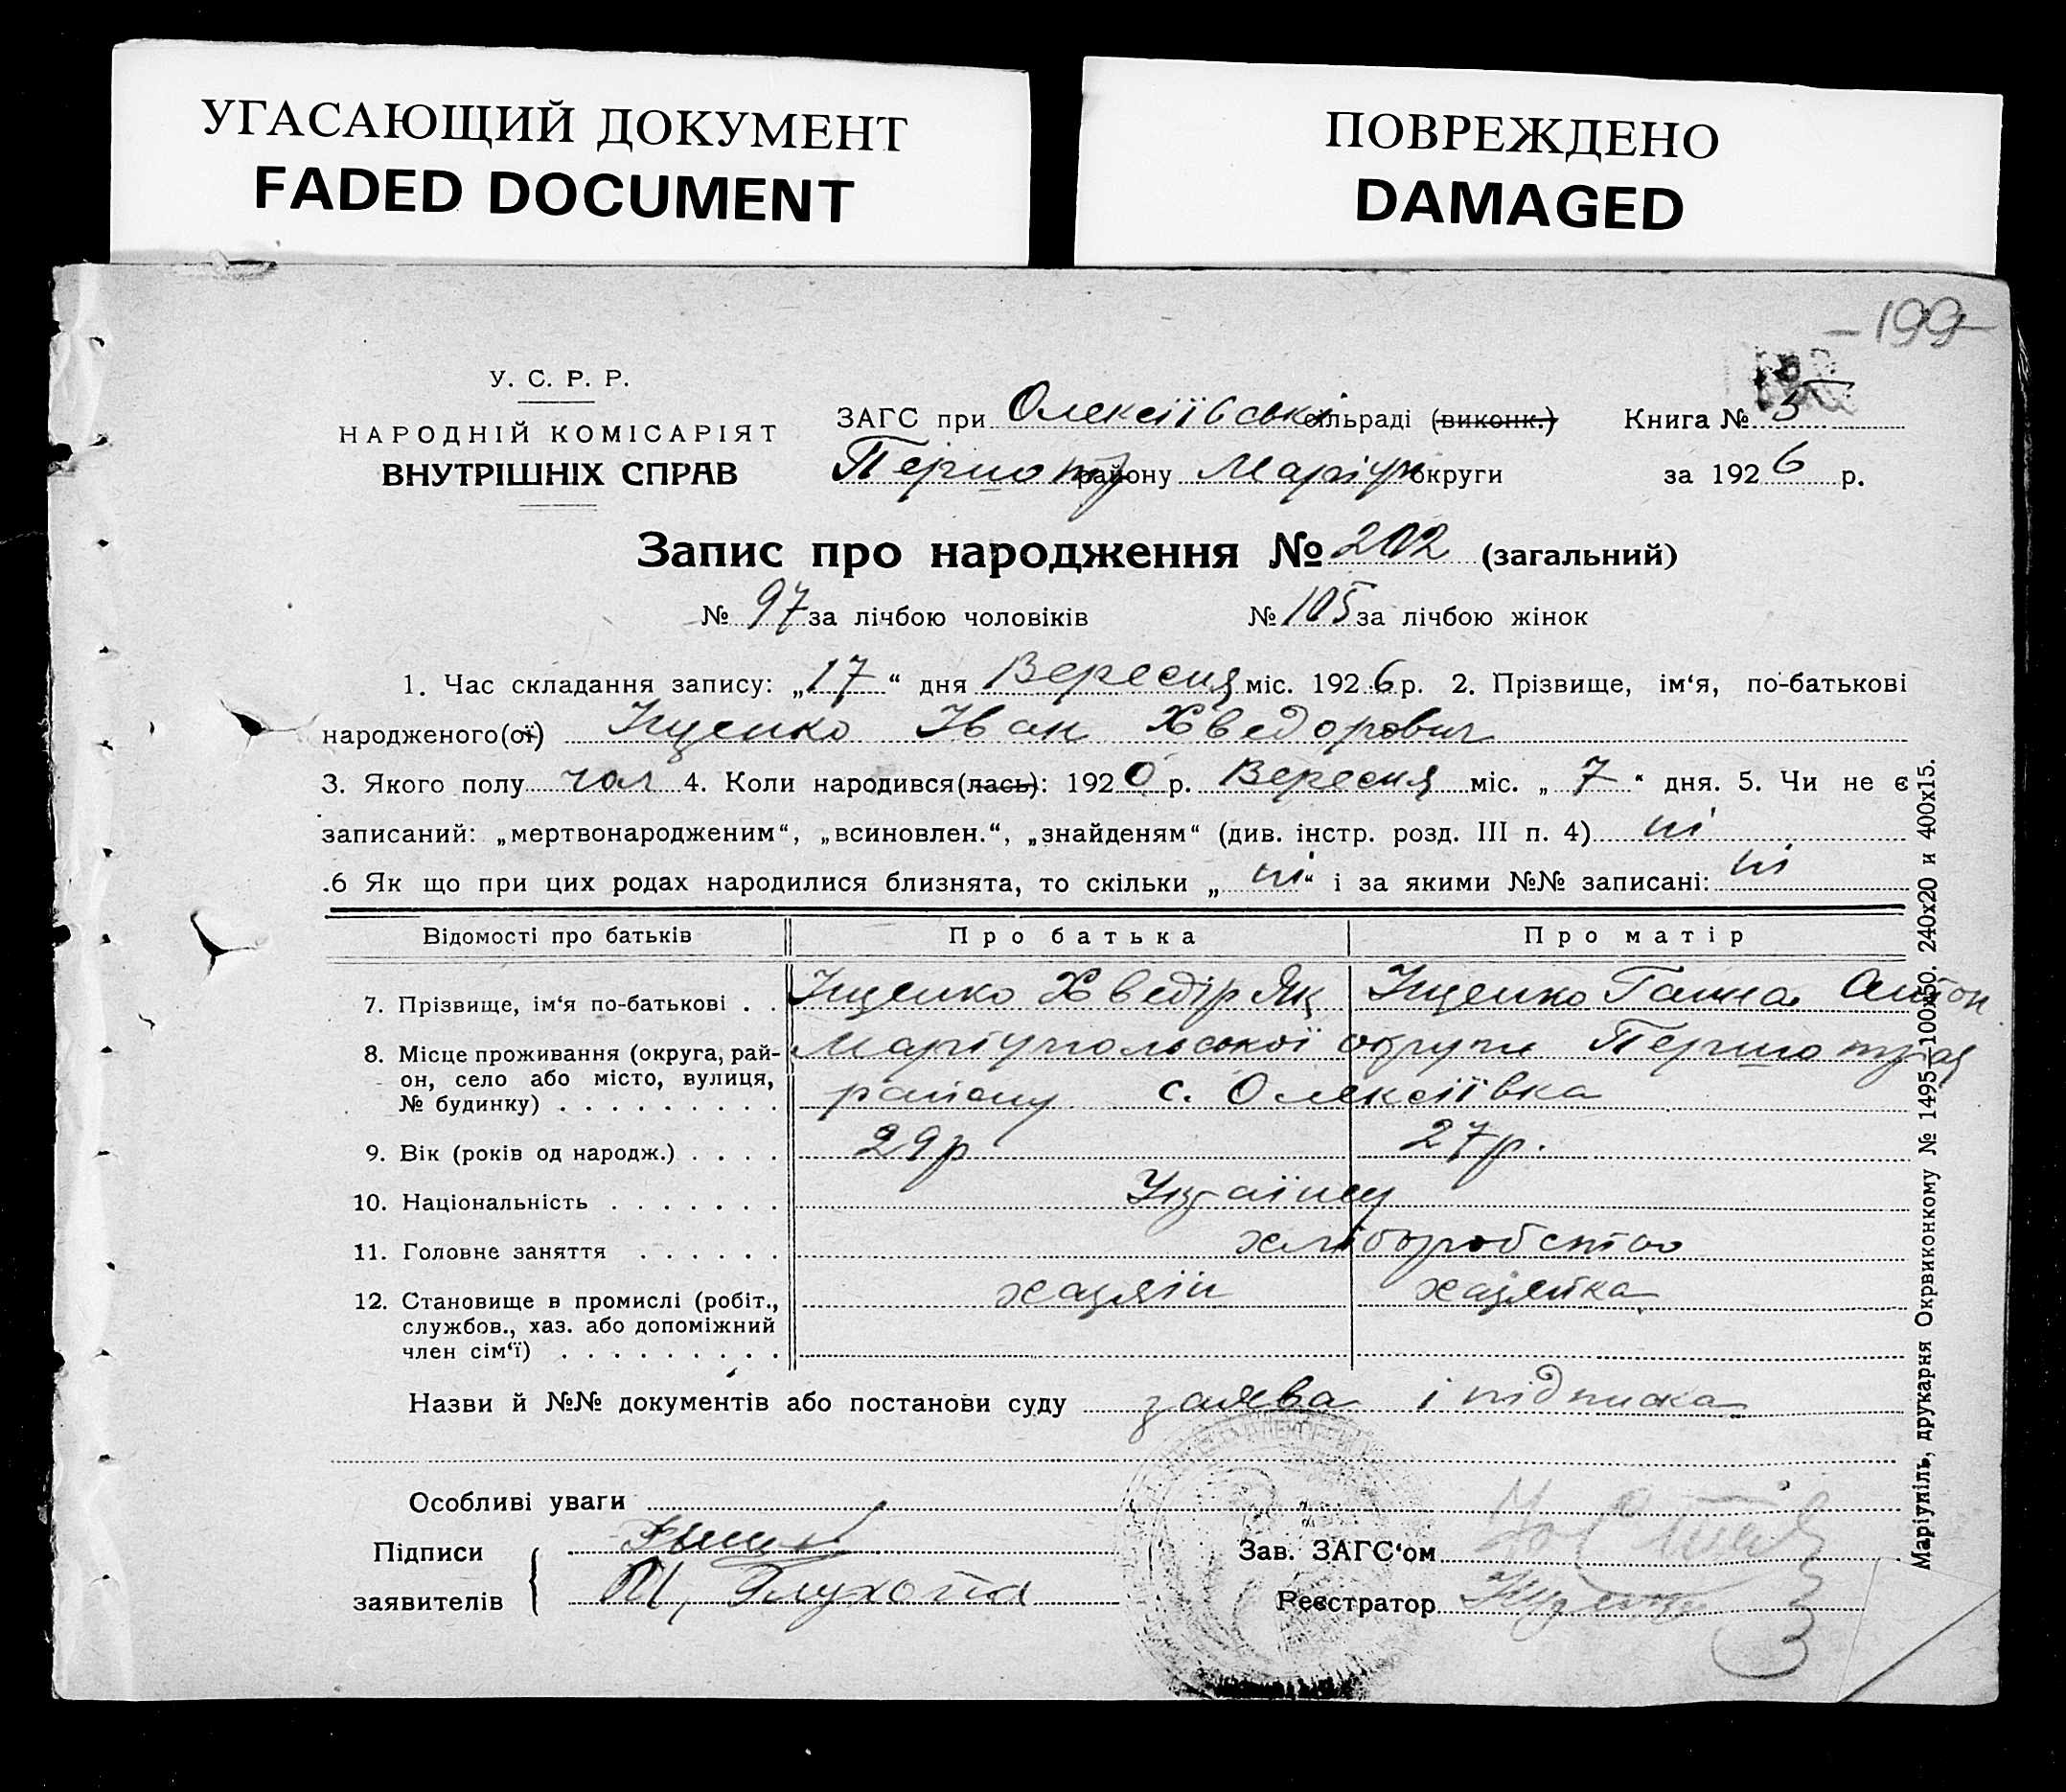 УГАСАЮЩИЙ ДОКУМЕНТ
FADED DOCUMENT
ПОВРЕЖДЕНО
DAMAGED
-199-
У. С. Р. Р.
НАРОДНІЙ КОМІСАРІЯТ
ВНУТРІШНІХ СПРАВ
ЗАГС при Олексіївські сільраді (виконк.) Книга № 3
Першотр району Маріуп округи за 1926 р.
Запис про народження № 202 (загальний)
№ 97 за лічбою чоловіків № 105 за лічбою жінок
1. Час складання запису: „17“ дня Вересня міс. 1926 р. 2. Прізвище, ім‘я, по-батькові
народженого(ої) Іщенко Іван Хведорович
3. Якого полу чол 4. Коли народився(лась): 1920 р. Вересня міс. „7“ дня. 5. Чи не є
записаний: „мертвонародженим“, „всиновлен.“, „знайденям“ (див. інстр. розд. III п. 4) ні
.6 Як що при цих родах народилися близнята, то скільки „ні“ і за якими №№ записані: ні
Відомості про батьків Про батька Про матір
7. Прізвище, ім‘я по-батькові . . Іщенко Хведір Як Іщенко Ганна Антон
8. Місце проживання (округа, рай- Маріупольської округи Першотрав
он, село або місто, вулиця, району с. Олексіївка
№ будинку) . . . . . . . . .
9. Вік (років од народж.) . . . . 29р 27р.
10. Національність . . . . . . . Українц
11. Головне заняття . . . . . . хліборобство
12. Становище в промислі (робіт., хазяін хазяйка
службов., хаз. або допоміжний
член сім‘ї) . . . . . . . . .
Назви й №№ документів або постанови суду заява і підписка
Особливі уваги
Підписи
заявителів П. Глухота
Зав. ЗАГС‘ом
Реєстратор
Маріупіль, друкарня Окрвиконкому № 1495—100х50. 240х20 и 400х15.